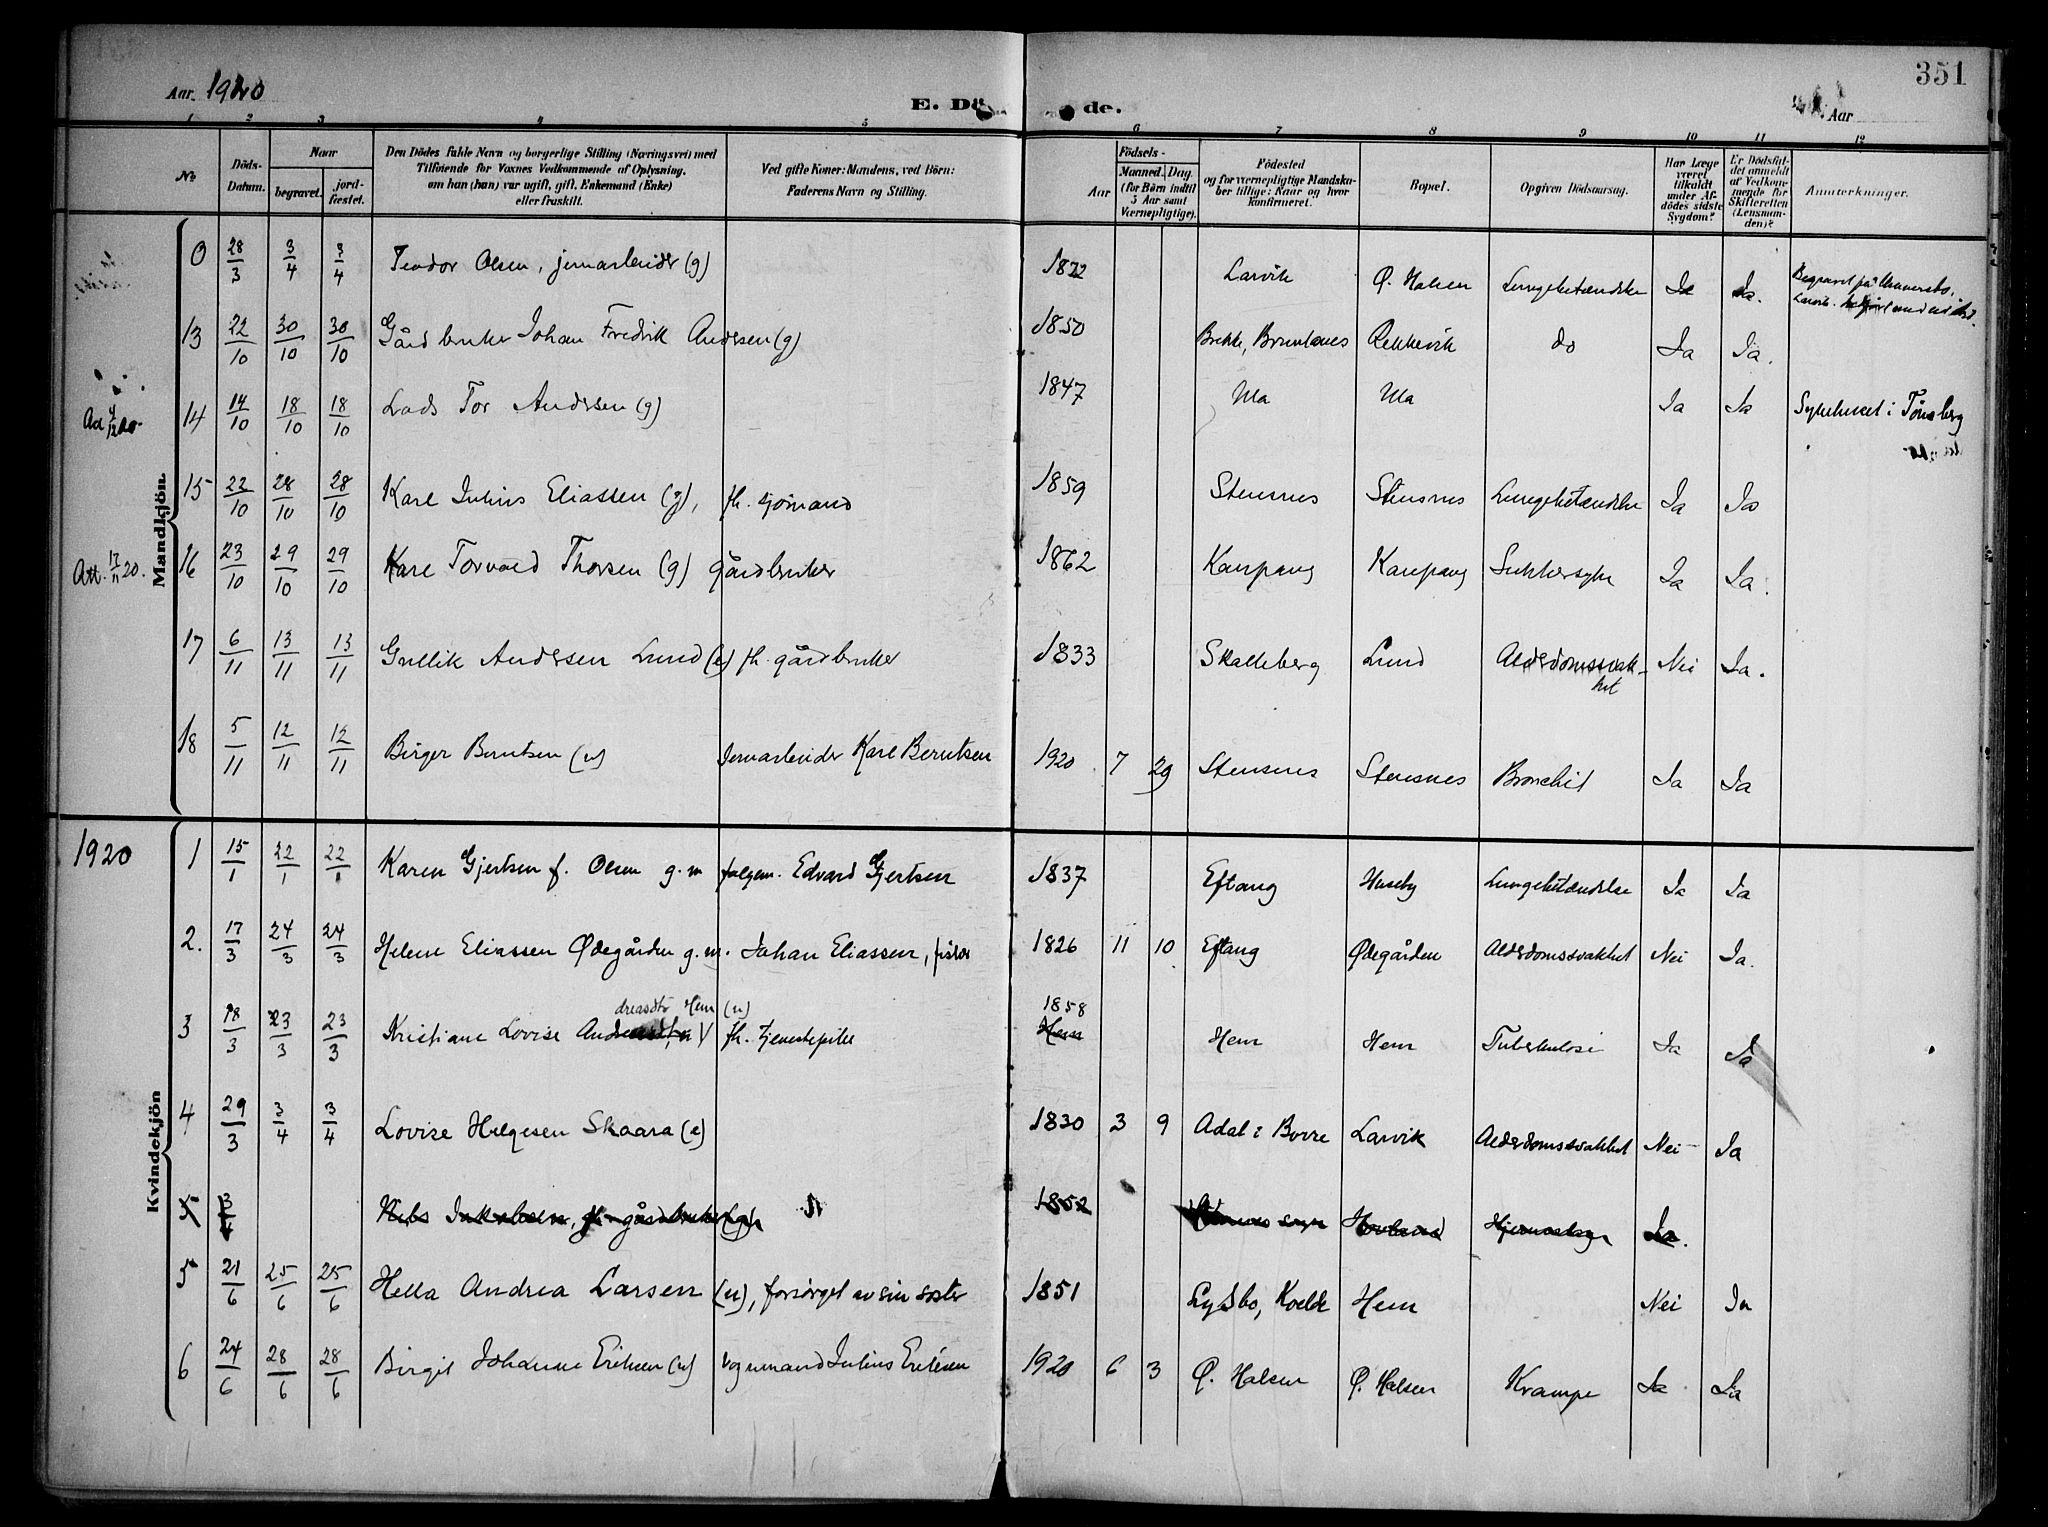 351
Aar 1920
E. Dö de.
Aar
1 2 3 4 5 6 7 8 9 10 11 12
No
Döds-Datum.
Naar
begravet.
jord-fæstet.
Den Dödes fulde Navn og borgerlige Stilling (Næringsvei) med
Tilföiende for Voxnes Vedkommende af Oplysning,
om han (hun) var ugift, gift, Enkemand (Enke)
eller fraskilt.
Ved gifte Koner: Mandens, ved Börn:
Faderens Navn og Stilling.
Födsels-
Aar
Maaned. Dag.
(for Börn indtil
5 Aar samt
Værnepligtige).
Födested
og for værnepligtige Mandska-
ber tillige: Naar og hvor
konfirmeret.
Bopæl.
Opgiven Dödsaarsag.
Har Læge
været
tilkaldt
under Af-
dödes sidste
Sygdom?
Er Dödsfal-
det anmeldt
af Vedkom-
mende for
Skifteretten
(Lensman-
den)?
Anmærkninger.
Mandkjön.
0 28/3 3/4 3/4 Teodor Olsen, jernarbeider (g) 1872 Larvik Ø. Halsen Lungebetændelse Ja Ja. Begravet på
Larvik.
13 22/10 30/10 30/10 Gårdbruker Johan Fredrik Andersen (g) 1850 Brekke, Brunlanes Rekkevik do Ja Ja.
14 14/10 18/10 18/10 Lods Tor Andersen (g) 1847 Ula Ula Ja Ja Sykehuset i Tønsberg
15 22/10 28/10 28/10 Karl Julius Eliassen (g), fh. sjømand 1859 Stensnes Stensnes Lungebetændelse Ja Ja
Att. 17/11 20. 16 23/10 29/10 29/10 Karl Torvald Thorsen (g) gårdbruker 1862 Kaupang Kaupang Sukkersyke Ja Ja.
17 6/11 13/11 13/11 Gullik Andersen Lund (e) fh. gårdbruker 1833 Skalleberg Lund Alderdomssvak-
het Nei Ja.
18 5/11 12/11 12/11 Birger Berntsen (u) Jernarbeider Karl Berntsen 1920 7 29 Stensnes Stensnes Bronchit Ja Ja
1920
Kvindekjön
1 15/1 22/1 22/1 Karen Gjertsen f. Olsen g. m. Edvard Gjertsen 1837 Eftang Huseby Lungebetændelse Ja Ja
2. 17/3 24/3 24/3 Helene Eliassen Ødegården g. m. Johan Eliassen, fisker 1826 11 10 Eftang Ødegården Alderdomssvakhet Nei Ja.
dreasdtr Hem (u) 1858
3 18/3 23/3 23/3 Kristiane Lovise Andreasdtr fh. tjenestepike Hem Hem Hem Tuberkulose Ja Ja
4 29/3 3/4 3/4 Lovise Helgesen Skaara (e) 1830 3 9 Adal i Borre Larvik Alderdomssvakhet Nei Ja
5 3/4 Nils Jakobsen, fh. gårdbruker (g) 1852 Hovland Ja.
5 21/6 25/6 25/6 Hella Andrea Larsen (u), forsørget av sin søster 1851 Lysbo, Kvelde Hem Nei Ja
6 24/6 28/6 28/6 Birgit Johanne Eriksen (u) vognmand Julius Eriksen 1920 6 3 Ø. Halsen Ø. Halsen Krampe Ja Ja